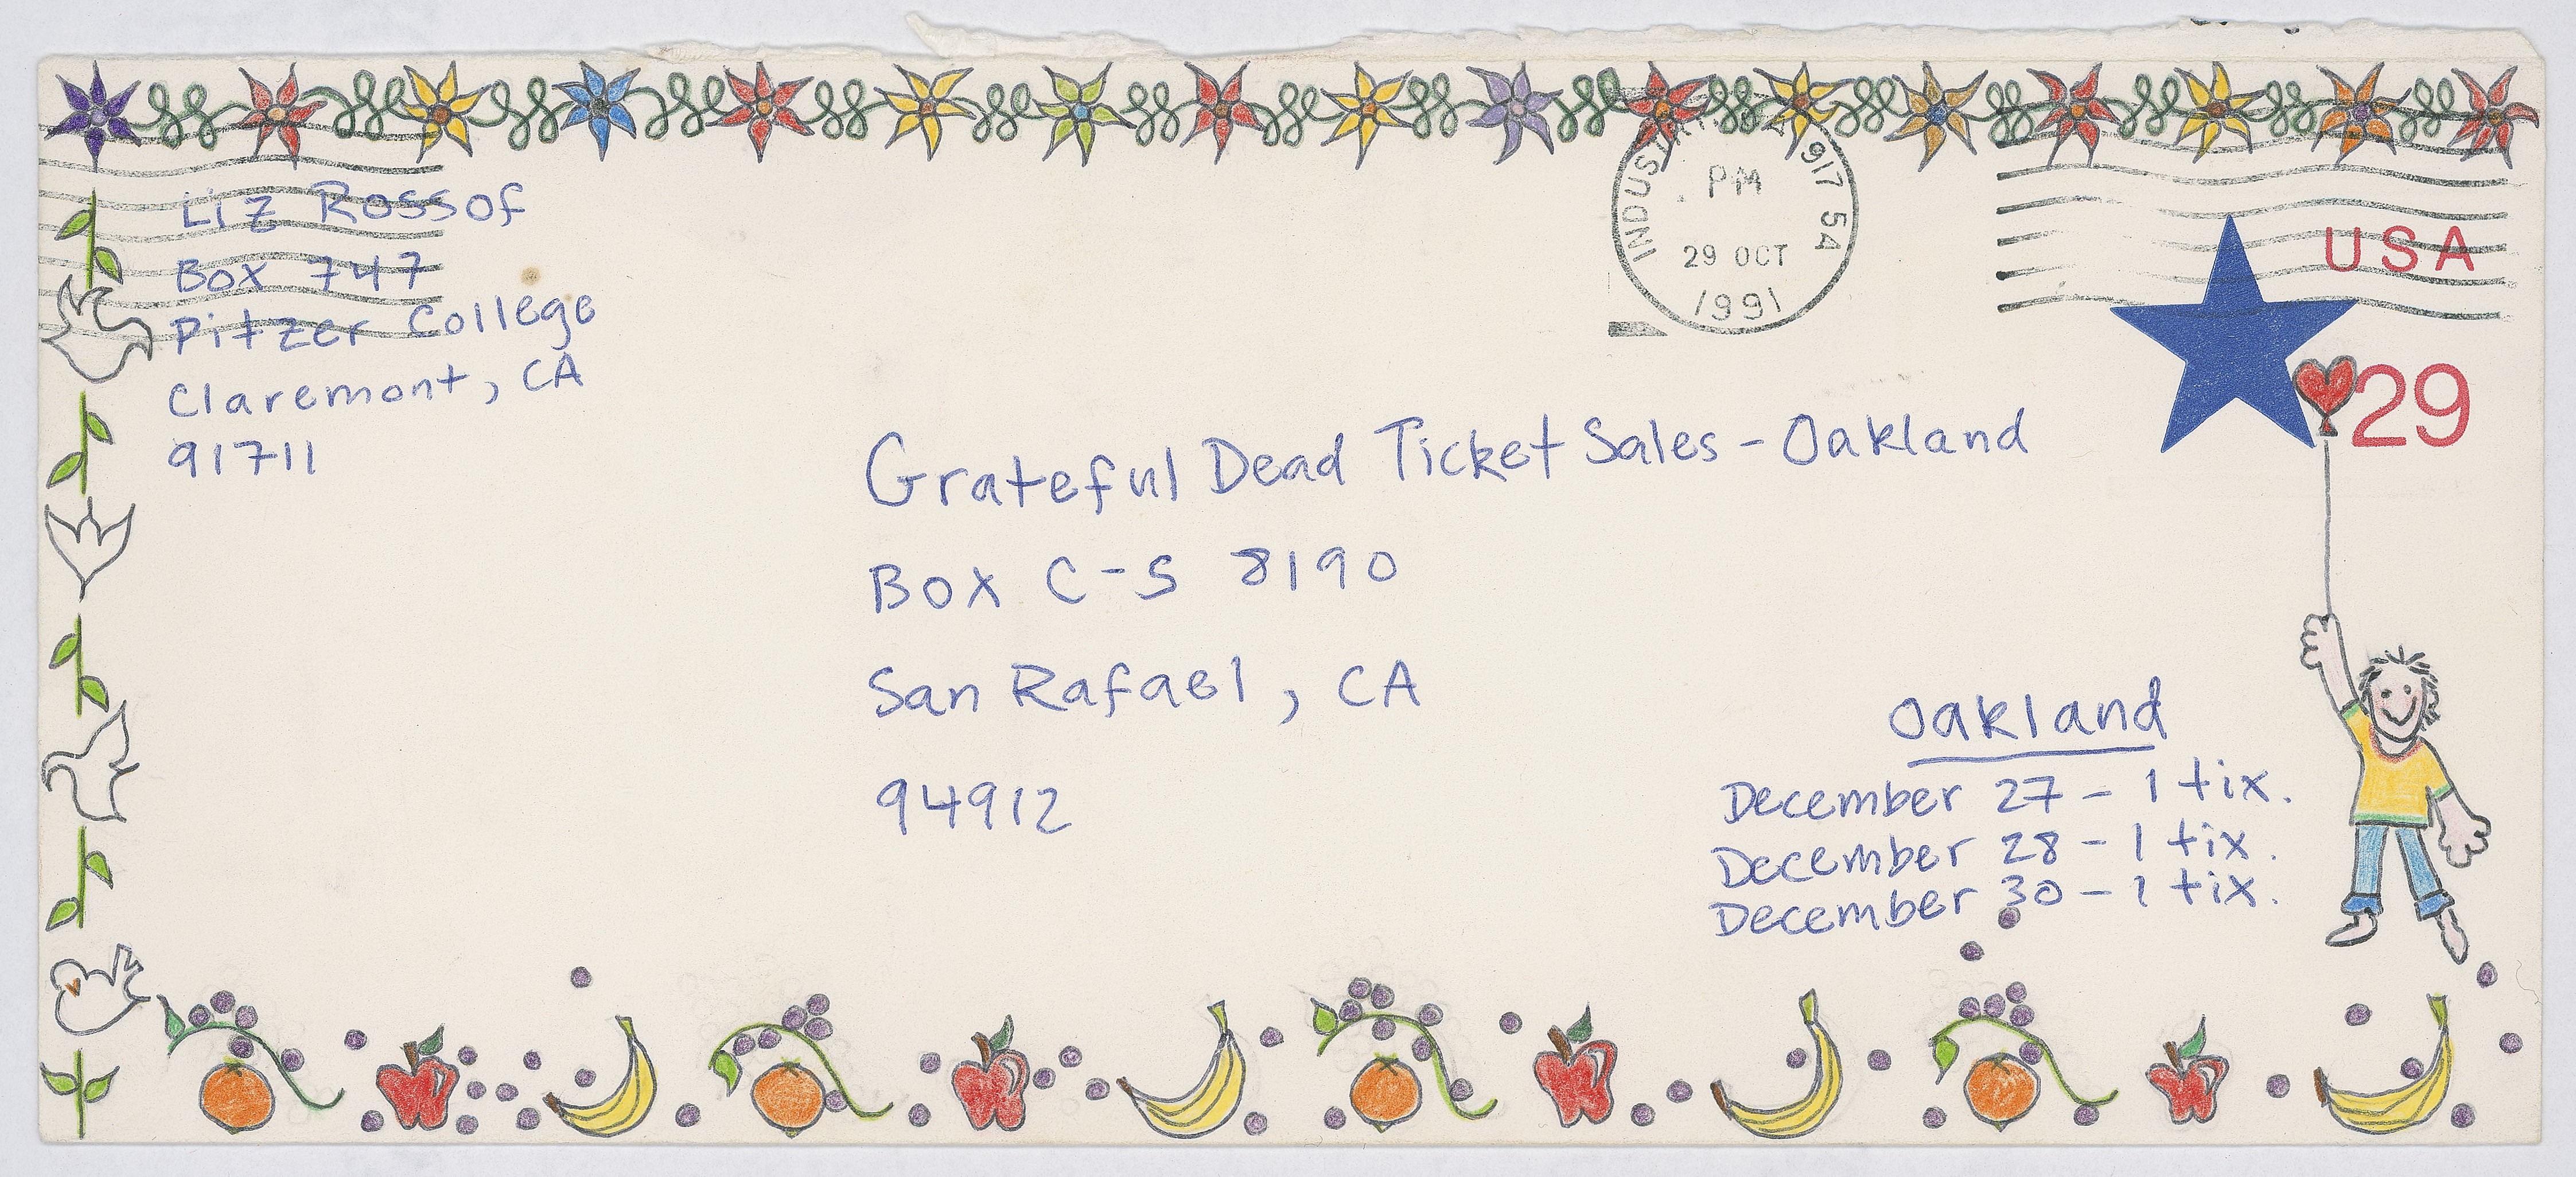 Liz Rossof
Box 747
Pitzer College
Claremont, CA
91711
PM
29 OCT
1991
917 54
USA
29
Grateful Dead Ticket Sales - Oakland
Box C-S 8190
San Rafael, CA
94912
Oakland
December 27 - 1 tix.
December 28 - 1 tix.
December 30 - 1 tix.